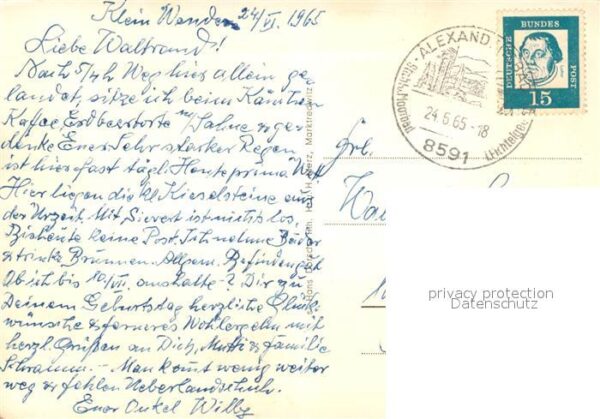 Klein Wenden 24/VI. 1965
Liebe Waltraud!
Nach 5/4 h Weg hier allein ge-
landet, sitze ich beim Kännchen
Kaffee Erdbeertorte m/Sahne & ge-
denke Euer. Sehr starker Regen
ist hier fast tägl. Heute prima
Hier liegen die kl Kieselsteine aus
der Urzeit. Mit Sievert ist nichts los,
Bisheute keine Post. Ich nehme Bäder
& trinke Brunnen. Allgem. Befinden gut
Ob ich bis 10/VII. aushalte -? Dir zu
Deinem Geburtstag herzliche Glück-
wünsche & ferneres Wohlergehn mit
herzl. Grüßen an Dich, Mutti & Familie
Schramm. - Man kommt wenig weiter
weg & fehlen Ueberlandschuh.
Euer Onkel Willy
Marktredwitz
Frl.
ALEXAND
24.6.65-18
8591
Fichtelgeb
DEUTSCHE BUNDES POST
15
privacy protection
Datenschutz